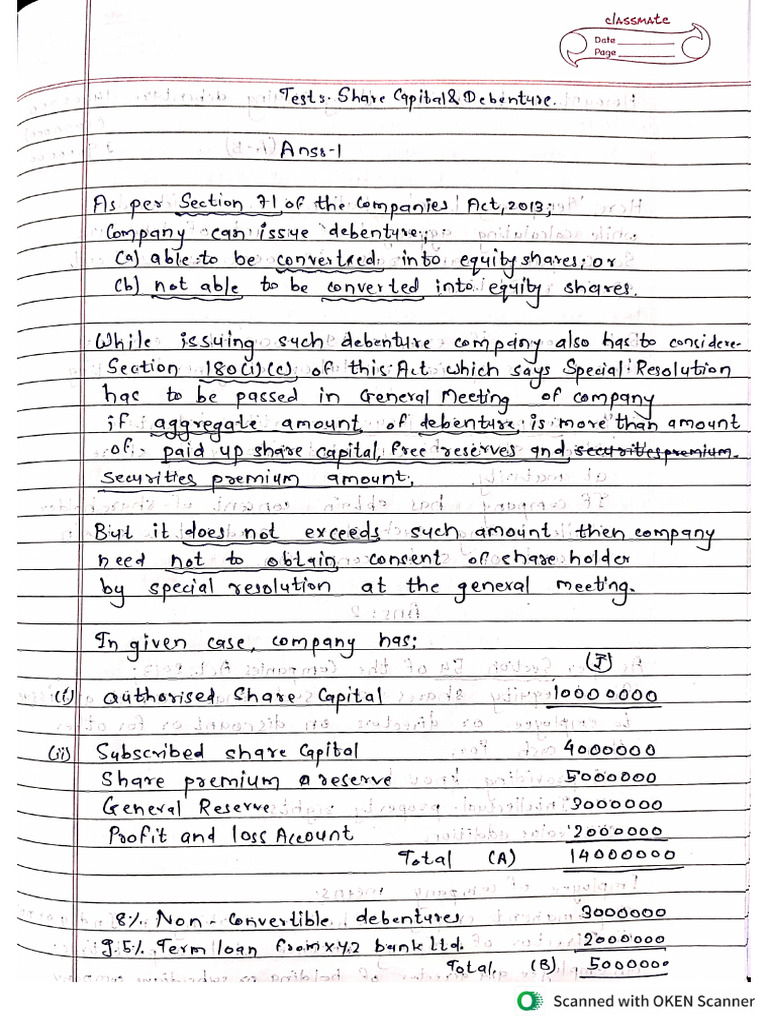 classmate
Date
Page
Tests. Share Capital & Debenture.
Anss-1
As per Section 71 of the Companies Act, 2013;
Company can issue debenture;
(a) able to be convertred into equity shares; or
(b) not able to be converted into equity shares.
While issuing such debenture company also has to considere
Section 180(i)(c) of this Act which says Special Resolution
has to be passed in General Meeting of company
if aggregate amount of debenture is more than amount
of paid up share capital, free reserves and securities premium
Securities premium amount.
But it does not exceeds such amount then company
need not to obtain consent of share holder
by special resolution at the general meeting.
In given case, company has;
(₹)
(i) authorised Share Capital 10000000
(ii) Subscribed share Capital 4000000
Share premium a reserve 5000000
General Reserve 3000000
Profit and loss Account 2000000
Total (A) 14000000
8% Non-Convertible debentures 3000000
9.5% Term loan from xyz bank ltd. 2000000
Total, (B) 5000000
Scanned with OKEN Scanner